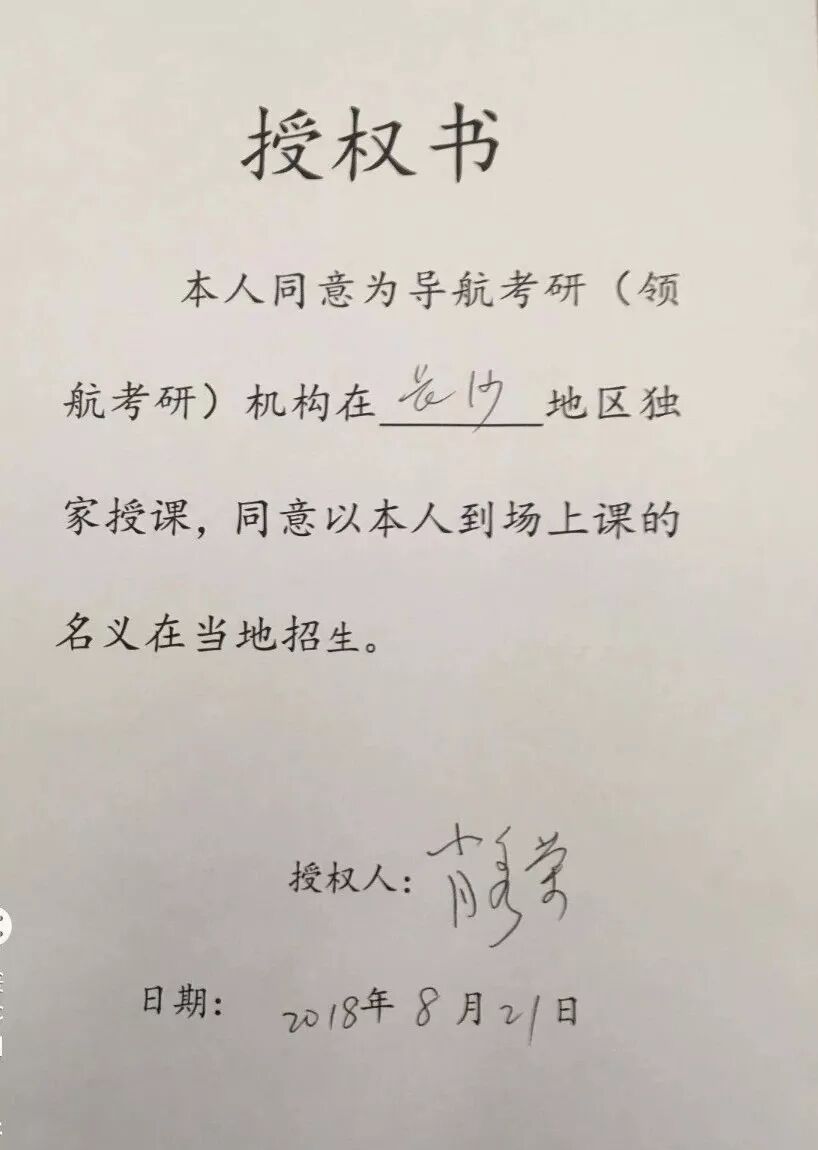 授权书
本人同意为导航考研（领
航考研）机构在长沙地区独
家授课，同意以本人到场上课的
名义在当地招生。
授权人：肖秀荣
日期：2018年8月21日